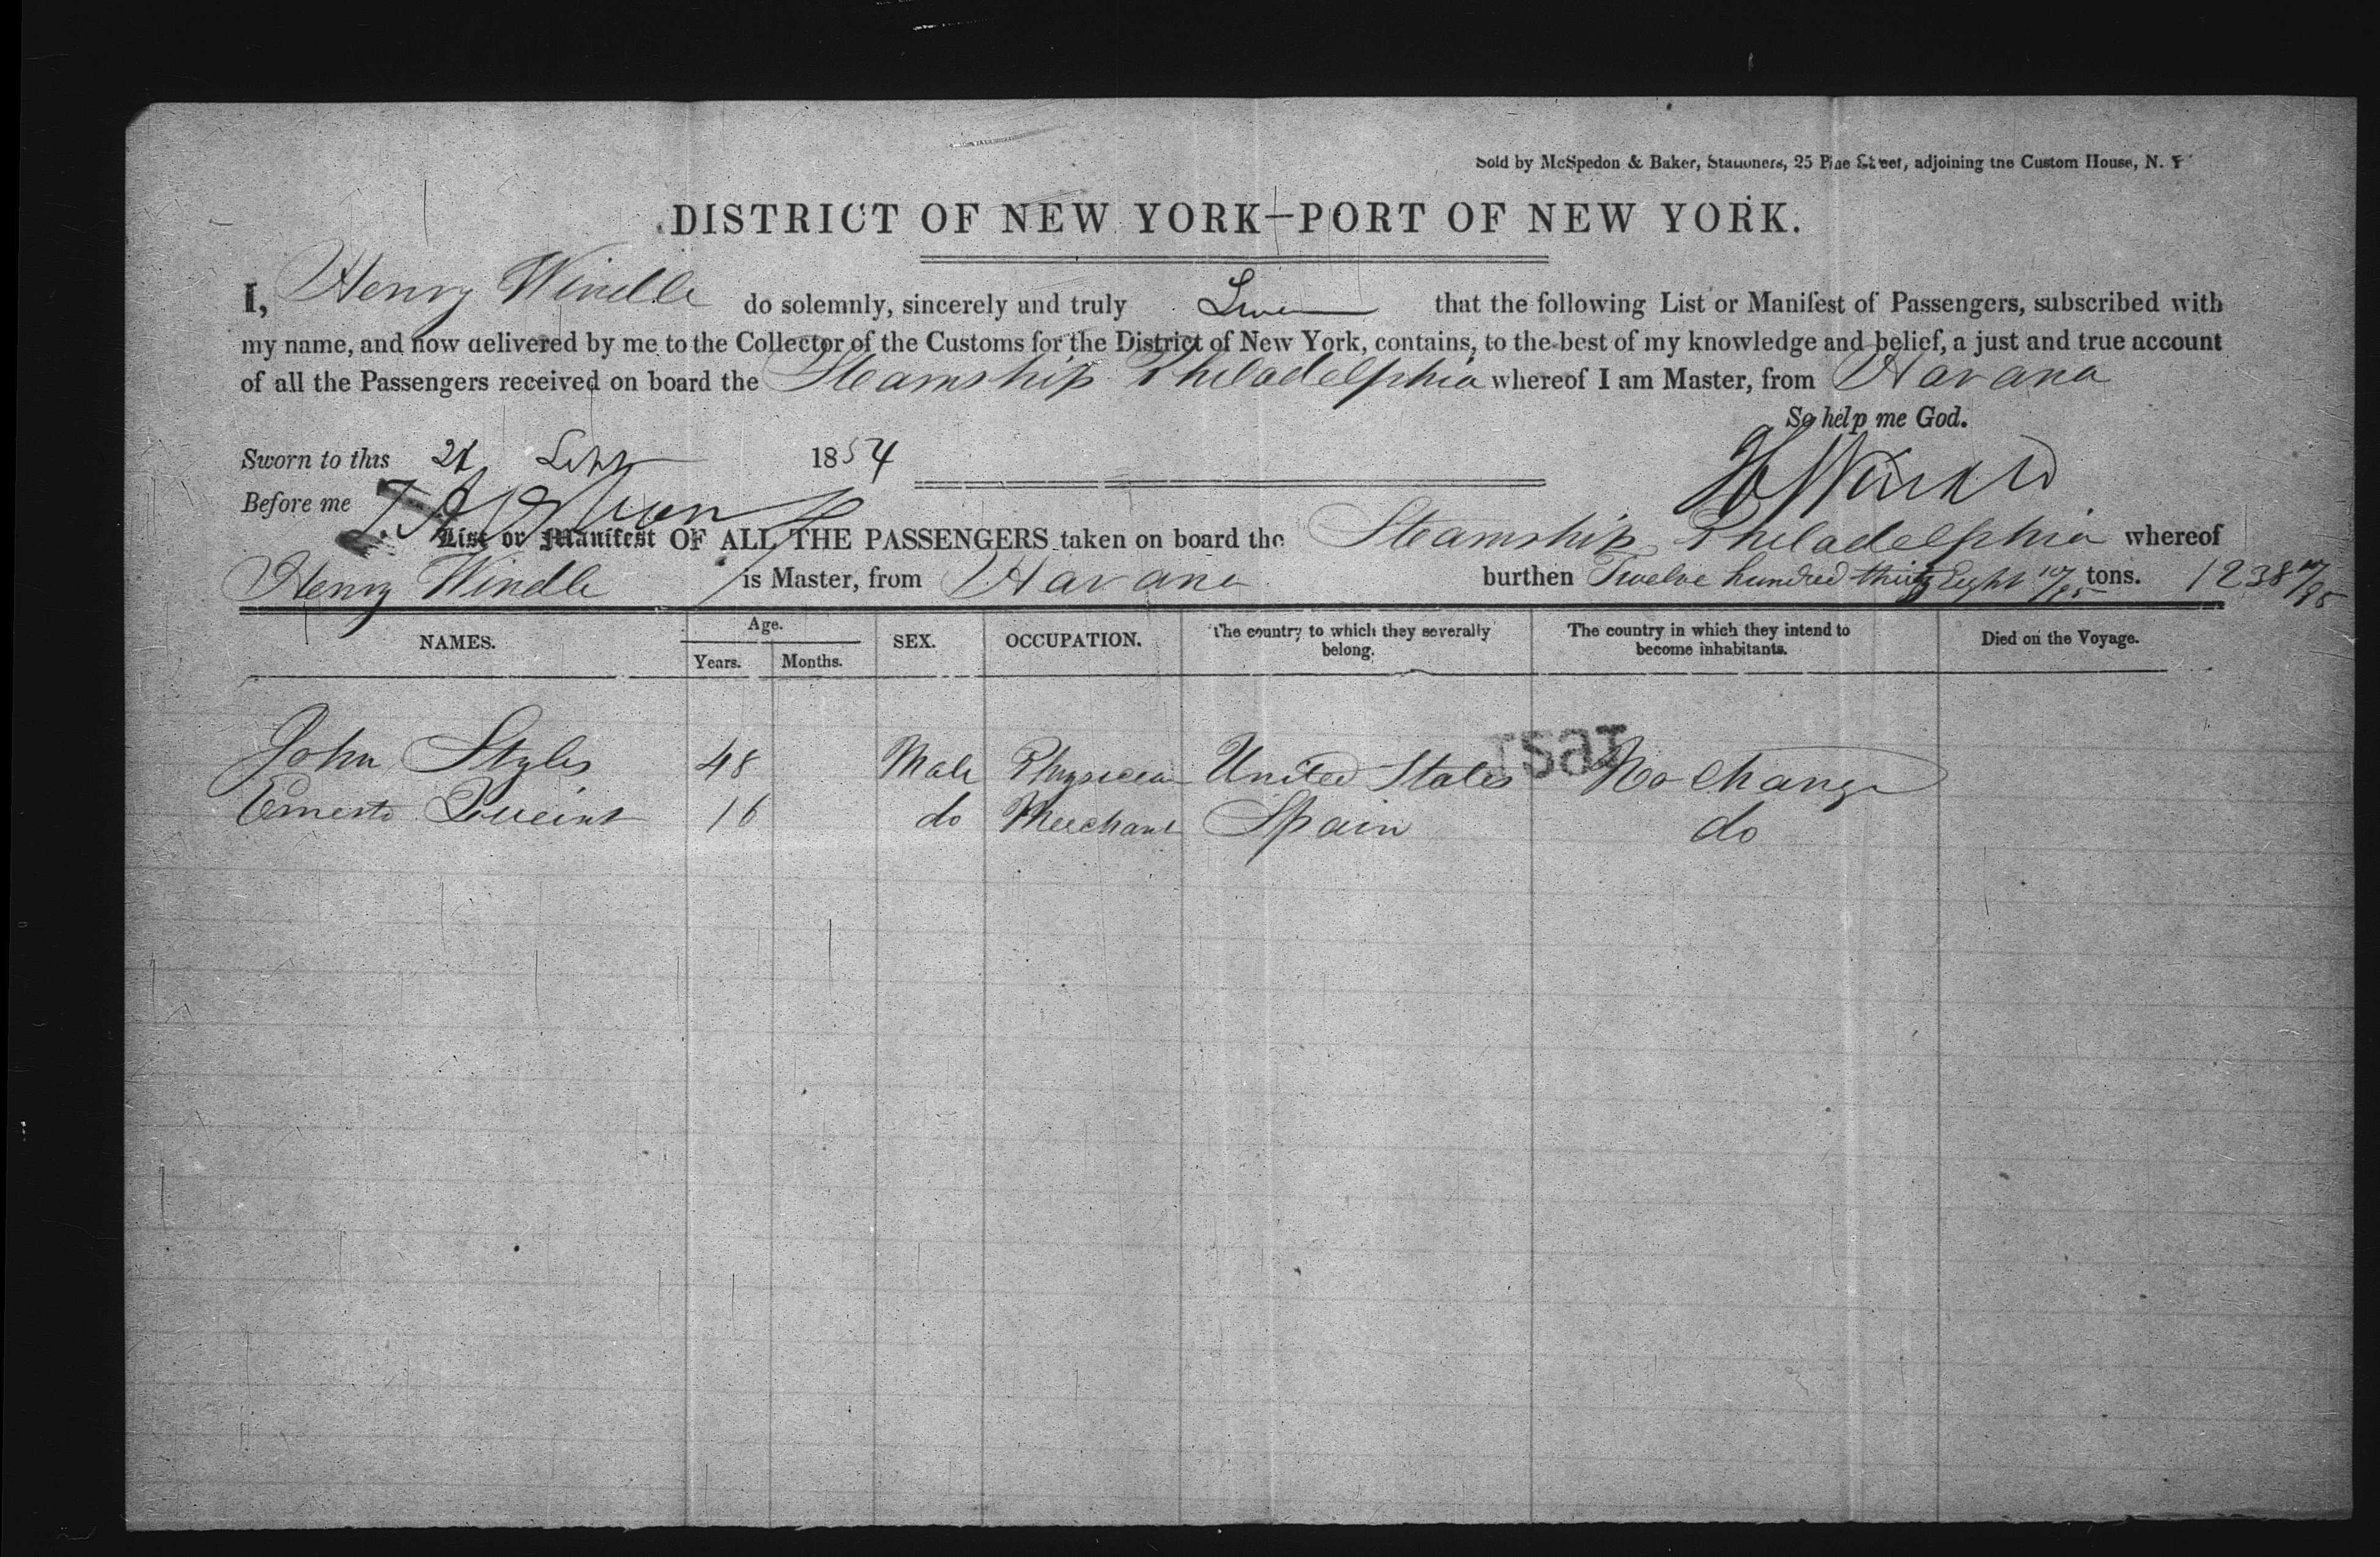 Sold by McSpedon & Baker, Stationers, 25 Pine Street, adjoining the Custom House, N. Y
DISTRICT OF NEW YORK—PORT OF NEW YORK.
I, Henry Windle do solemnly, sincerely and truly Swear that the following List or Manifest of Passengers, subscribed with
my name, and now delivered by me to the Collector of the Customs for the District of New York, contains, to the best of my knowledge and belief, a just and true account
of all the Passengers received on board the Steamship Philadelphia whereof I am Master, from Havana
So help me God.
Sworn to this 21 Sept 1854
H Windle
Before me
List or Manifest OF ALL THE PASSENGERS taken on board the Steamship Philadelphia whereof
Henry Windle is Master, from Havana burthen Twelve hundred thirty Eight 10/95 tons. 1238 10/95
NAMES. Age. SEX. OCCUPATION. The country to which they severally belong. The country in which they intend to become inhabitants. Died on the Voyage.
Years. Months.
John Styles 48 Male Physician United States No Change
Ernesto 16 do Merchant Spain do